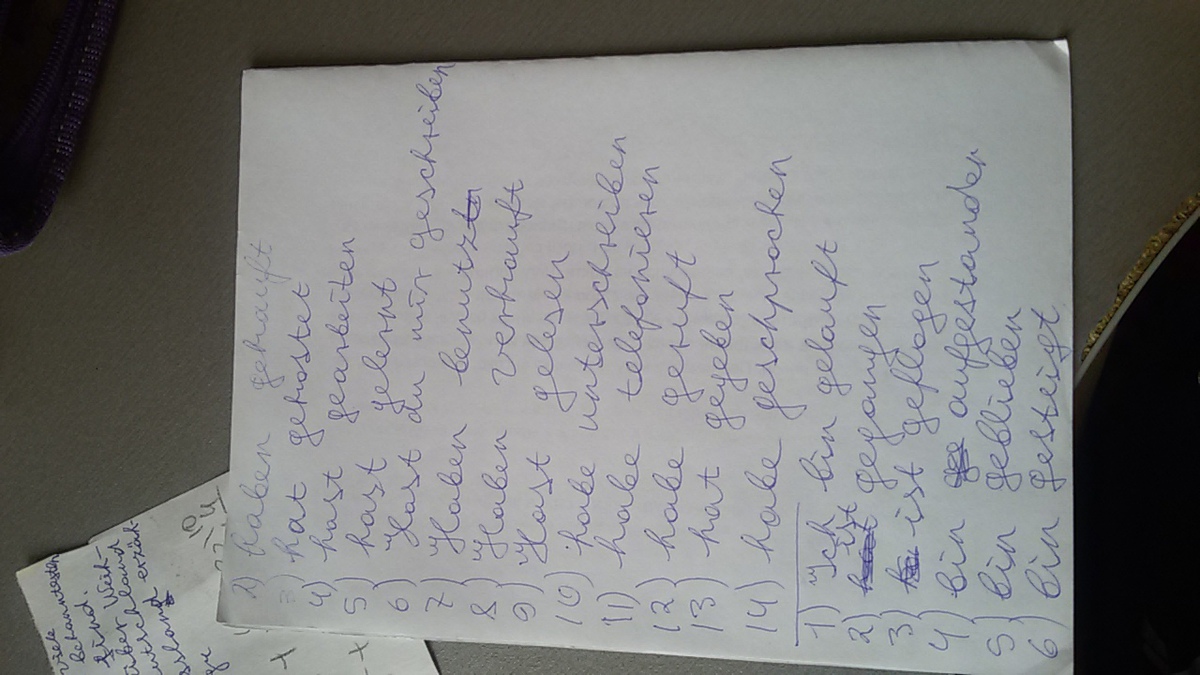 2) haben gekauft
3) hat gekostet
4) hast gearbeiten
5) hast gelernt
6) Hast du mir geschreiben
7) Haben benutzt
8) Haben verkauft
9) Hast gelesen
10) habe unterschreiben
11) habe telefonieren
12) habe geruft
13) hat gegeben
14) habe geschprochen
1) Ich bin gelauft
2) ist gegangen
3) ist geflogen
4) bin aufgestanden
5) bin geblieben
6) bin gesteigt
viele
bekanntesten
sind.
über Welt-